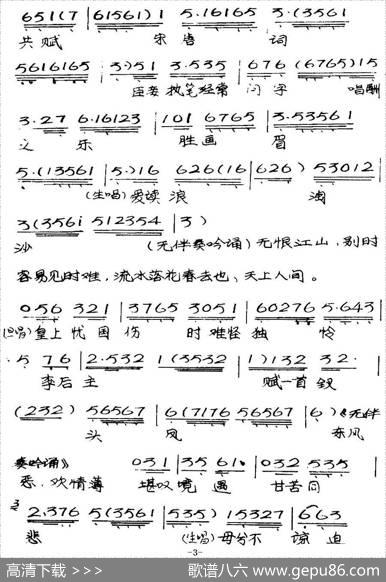 651(7 | 61561) 1 5.16165 3.(3561
共赋 宋唐 词
5616165 | 3.)51 3.535 | 676 (6765) 15
臣妾 执笔经常 问字 唱酬
3.27 6.16123 | 101 6765 | 3.53561
之乐 胜画 眉
5.(13561 | 5.)16 626(16 | 626) 53012
(生唱)爱读 浪 淘
3(3561 512354 | 3)
沙 (无伴奏吟诵)无恨江山,别时
容易见时难,流水落花春去也、天上人间。
056 321 | 3765 3051 | 60276 5.643 |
(旦唱)皇上忧国伤 时难怪独 怜
5 76 | 2.532 1(3532 | 1)132 32.
李后主 赋一首钗
(232) 56567 | 6(7176 56567 | 6)
头 凤 《无伴
奏吟诵》 东风
恶.欢情薄 031 | 35 61. | 032 535 |
堪叹境遇 甘苦同
2.376 5(3561 | 535) 15327 | 663
悲 (生唱)母分不 谅 迫
-3-
高清下载 >>>
歌谱八六 www.gepu86.com